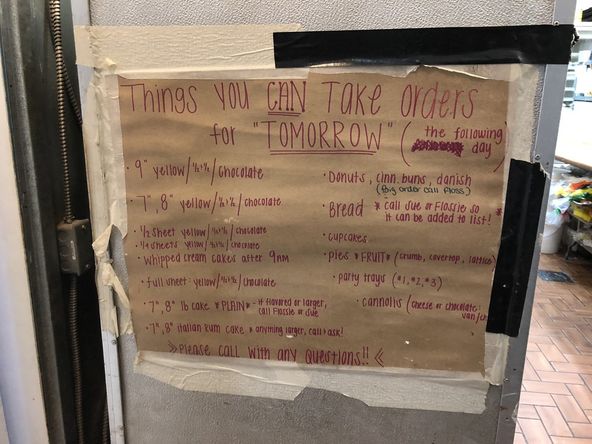 Things you CAN Take orders
for "TOMORROW" (the following day)
• 9" yellow/½+½/chocolate
• 7", 8" yellow/½+½/chocolate
• ½ sheet yellow/½+½/chocolate
• ¼ sheets yellow/½+½/chocolate
• whipped cream cakes after 9am
• full sheet yellow/½+½/chocolate
• 7", 8" lb cake * PLAIN * - if flavored or larger,
call Flossie or Sue
• 7", 8" italian Rum cake * anything larger, call + ask!
• Donuts, cinn. buns, danish
(Big order call Floss)
• Bread * call Sue or Flossie so
it can be added to list!
• cupcakes
• Pies * FRUIT * (crumb, covertop, lattice)
• party trays (#1, #2, #3)
• cannolis (cheese or chocolate
>> Please call with any Questions!! <<